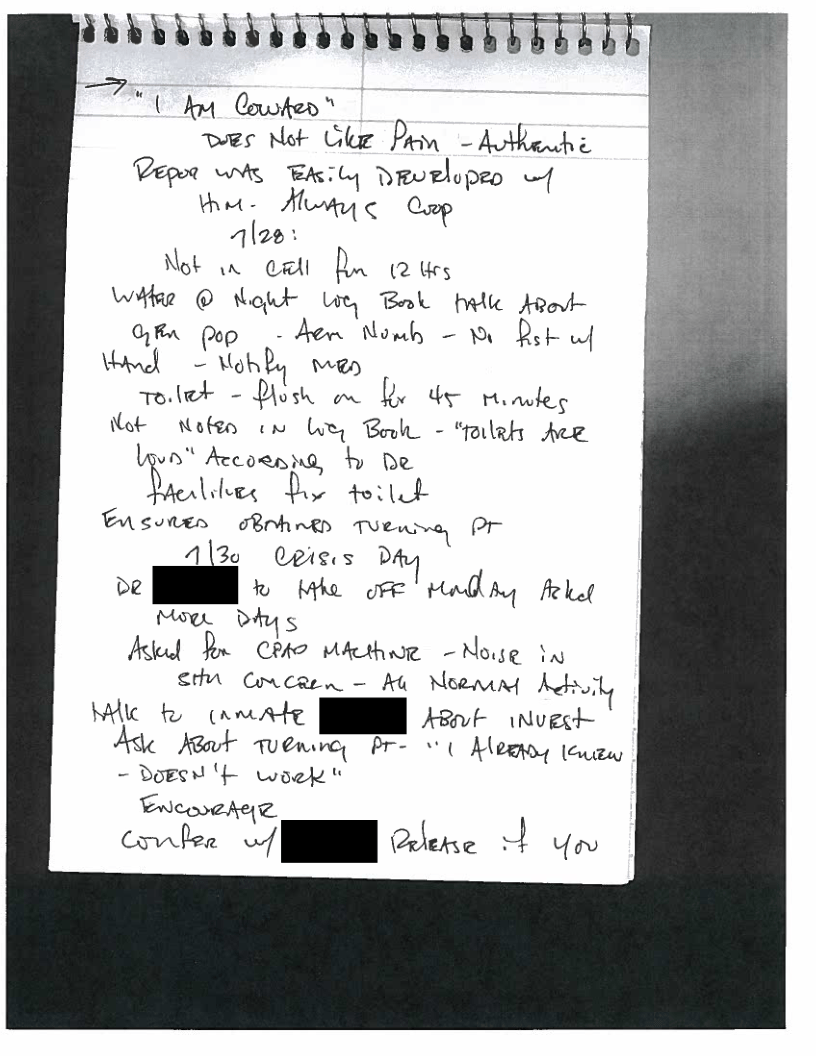 → "I AM COWARD"
DOES NOT LIKE PAIN - AUTHENTIC
REPOR WAS EASILY DEVELOPED w/
HIM - ALWAYS COOP
7/28:
NOT IN CELL for 12 HRS
WATER @ NIGHT LOG BOOK TALK ABOUT
GEN POP - ARM NUMB - NO fist w/
HAND - NOTIFY MED
TOILET - flush on for 45 MINUTES
NOT NOTED IN LOG BOOK - "TOILETS ARE
LOUD" ACCORDING to DR
FACILITIES fix toilet
ENSURED OBTAINED TURNING PT
7/30 CRISIS DAY
DR to take OFF MONDAY Asked
MORE DAYS
Asked for CPAP MACHINE - NOISE IN
SHU CONCERN - All NORMAL Activity
TALK to INMATE ABOUT INVEST
ASK ABOUT TURNING PT - "I ALREADY KNEW
- DOESN'T WORK"
ENCOURAGE
CONFER w/ RELEASE if YOU